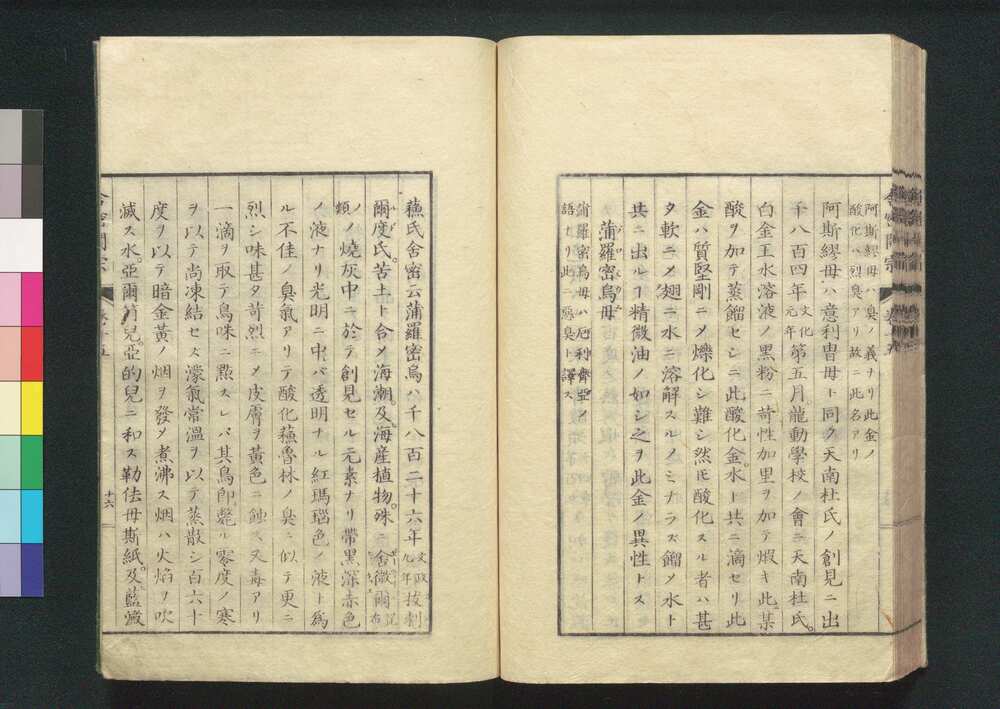 阿斯繆母ハ臭ノ義ナリ此金ノ
酸化ハ烈臭アリ故ニ此名アリ
阿斯繆母ハ意利胄母ト同ク天南杜氏ノ創見ニ出
千八百四年文化元年第五月龍動學校ノ會ニ天南杜氏
白金王水溶液ノ黒粉ニ苛性加里ヲ加テ煆キ此ニ某
酸ヲ加テ蒸餾セシニ此酸化金水ト共ニ滴セリ此
金ハ質堅剛ニメ爍化シ難シ然𪜈酸化スル者ハ甚
タ軟ニメ翅ニ水ニ溶解スルノミナラス餾メ水ト
共ニ出ルヿ精微油ノ如シ之ヲ此金ノ異性トス
蒲羅密烏母
蒲羅密烏母ハ厄利齊亞ノ
語ナリ此ニ惡臭ト譯ス
蘓氏舍密云蒲羅密烏ハ千八百二十六年文政九年抜剌
爾度氏苦土ト合メ海潮及海産植物殊ニ舍微爾
ノ燒灰中ニ於テ創見セル元素ナリ帶黒深赤色
ノ液ナリ光明ニ中バ透明ナル紅瑪瑙色ノ液ト為
ル不佳ノ臭氣アリテ酸化蘓魯林ノ臭ニ似テ更ニ
烈シ味甚タ苛烈ニメ皮膚ヲ黃色ニ蝕ス又毒アリ
一滴ヲ取テ鳥咮ニ㸃スレバ其鳥即斃ル零度ノ寒
ヲ以テ尚凍結セス濛氣常溫ヲ以テ蒸散シ百六十
度ヲ以テ暗金黃ノ烟ヲ發メ煮沸ス烟ハ火焰ヲ吹
滅ス水亞爾箇兒亞的兒ニ和ス勒佉母斯紙及藍澱
十六